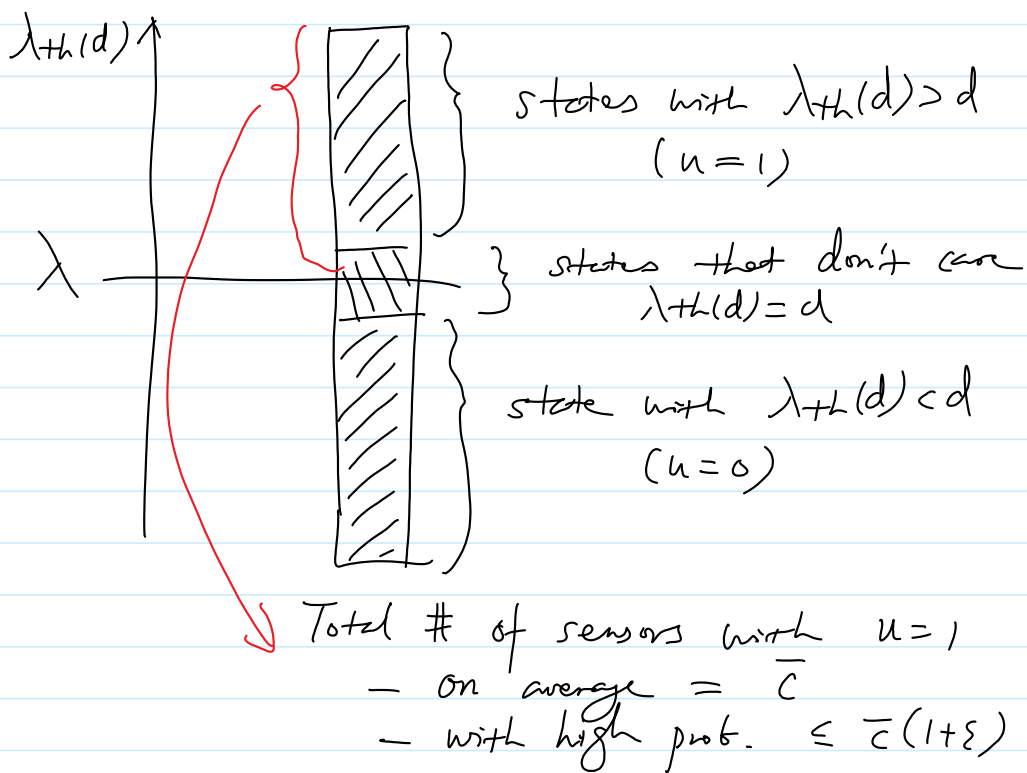 λth(d)
states with λth(d) > d
(u = 1)
λ
states that don't care
λth(d) = d
state with λth(d) < d
(u = 0)
Total # of sensors with u = 1
– on average = c̅
– with high prob. ≤ c̅(1+ε)